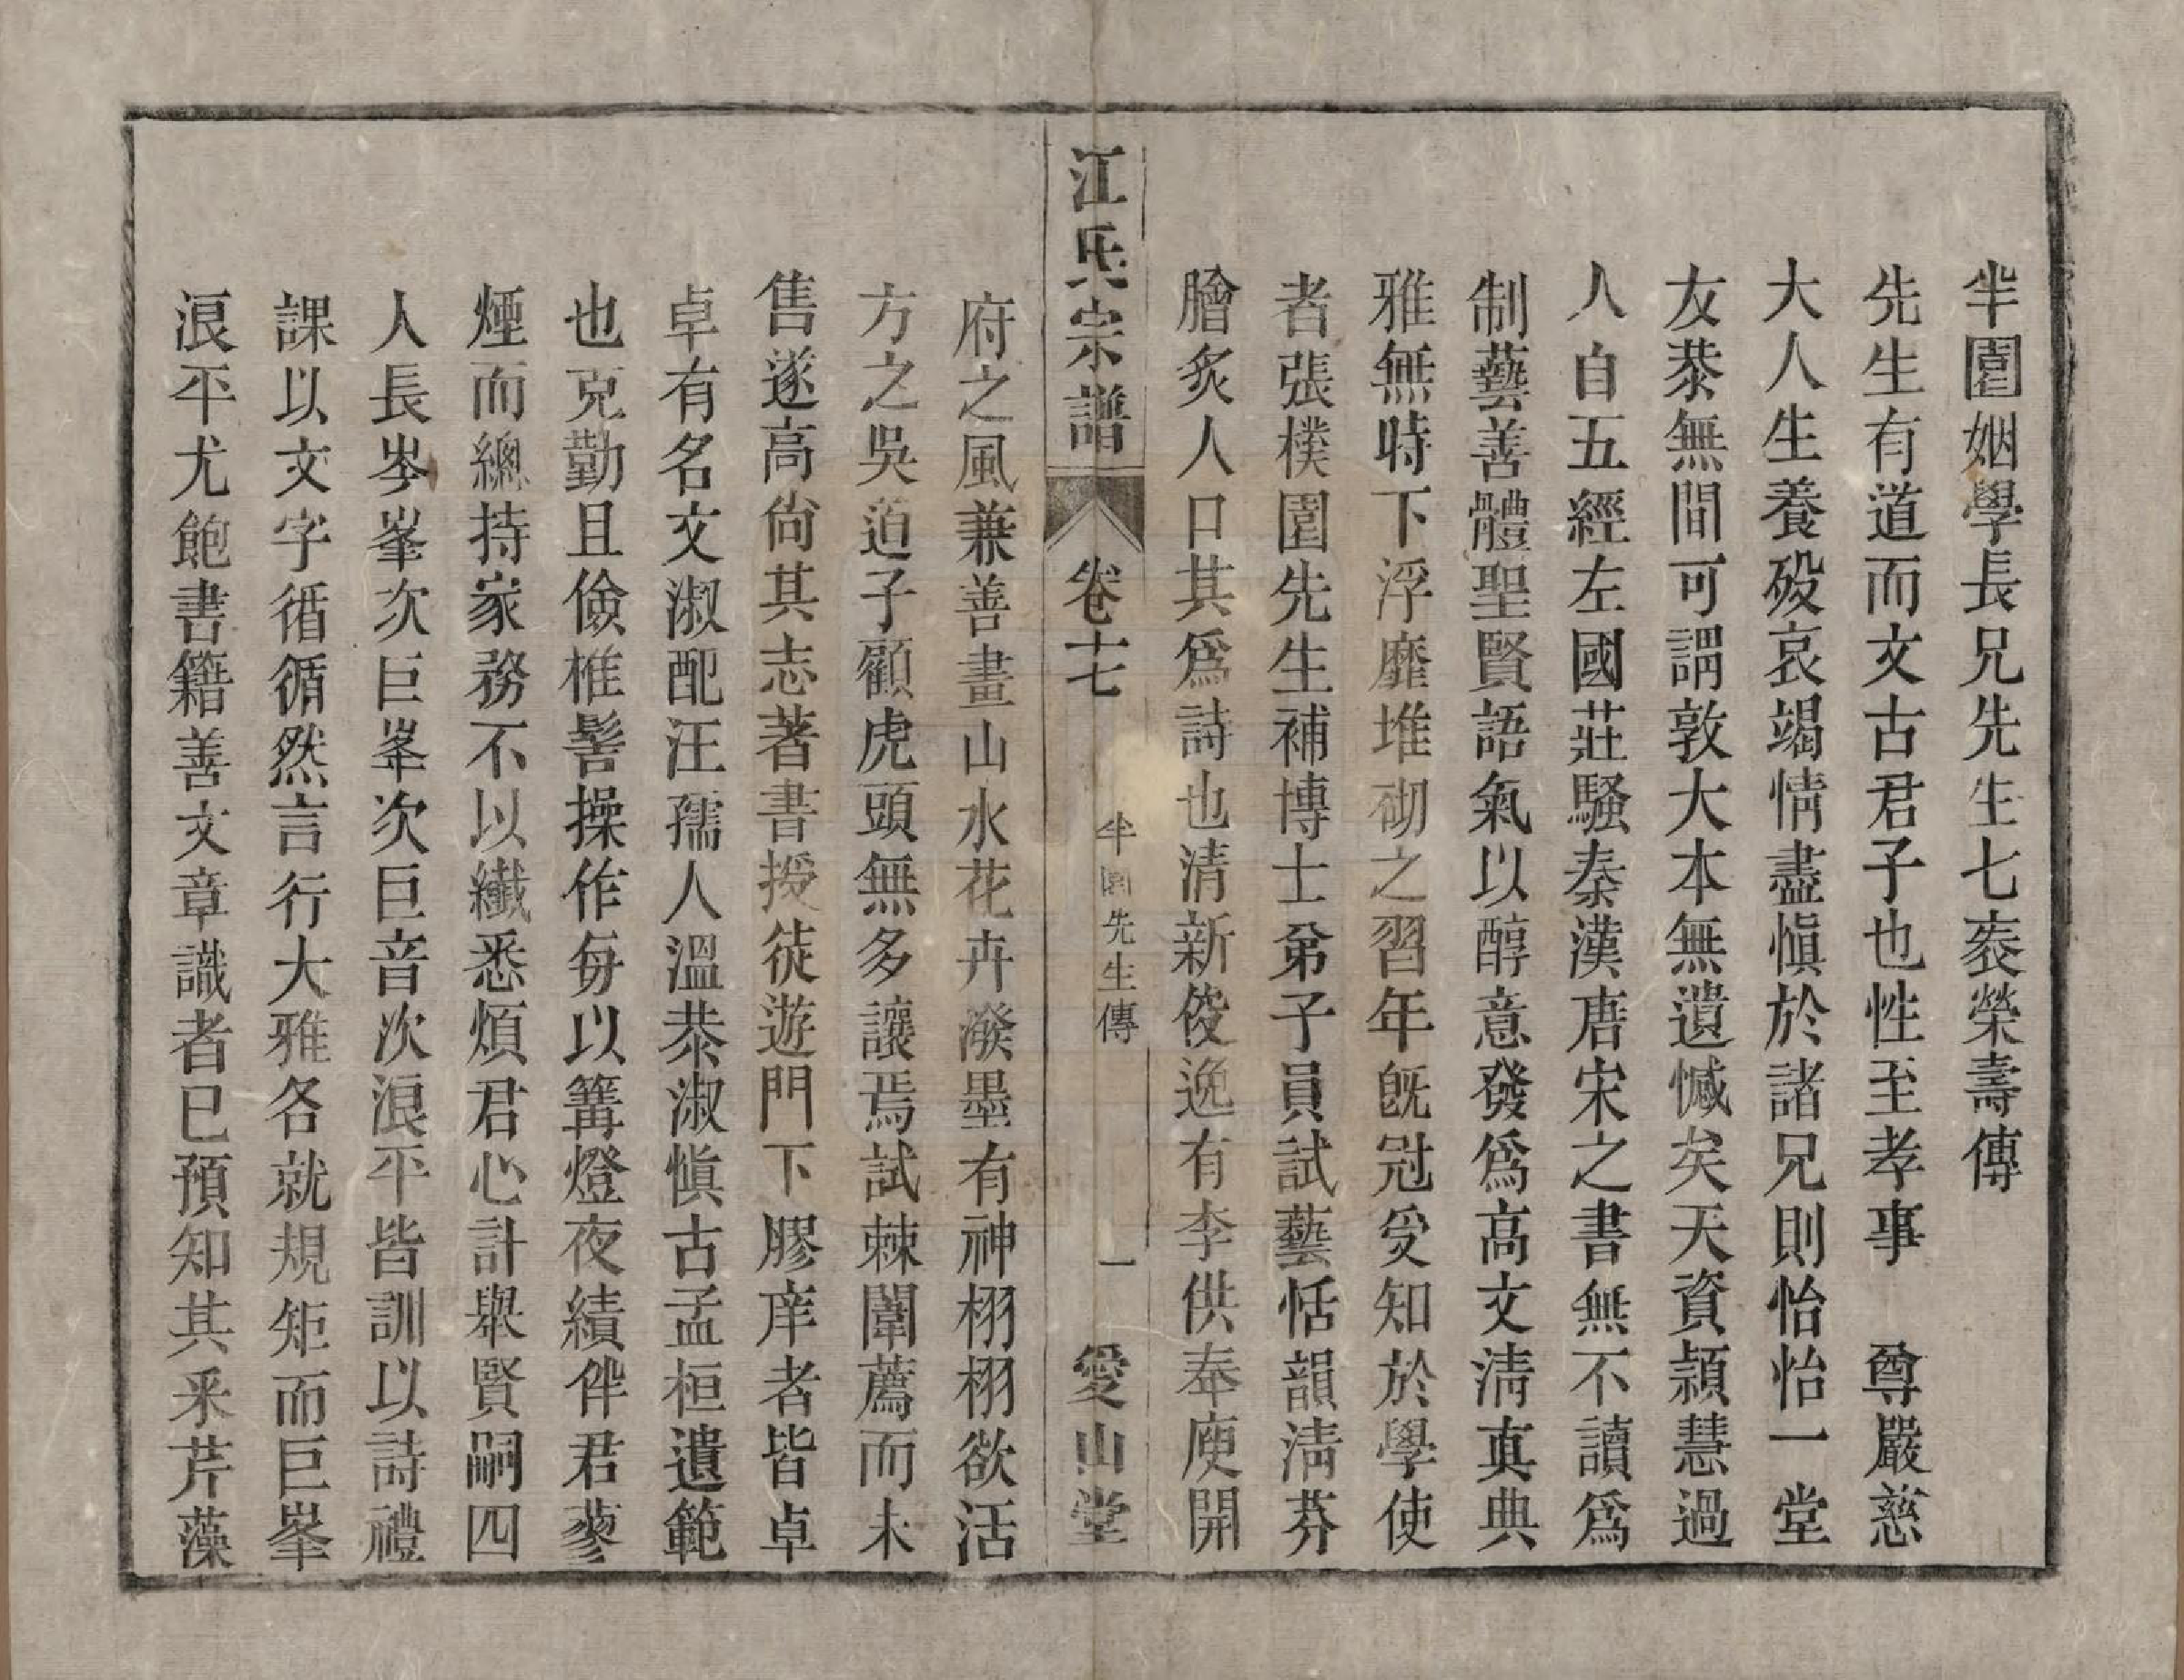 半園姻學長兄先生七袠榮壽傳
先生有道而文古君子也性至孝事　尊嚴慈
大人生養歿哀竭情盡愼於諸兄則怡怡一堂
友恭無間可謂敦大本無遺憾矣天資頴慧過
人自五經左國莊騷秦漢唐宋之書無不讀爲
制藝善體聖賢語氣以醇意發爲高文淸眞典
雅無時下浮靡堆砌之習年旣冠受知於學使
者張樸園先生補博士弟子員試藝恬韻淸芬
膾炙人口其爲詩也清新俊逸有李供奉庾開
江氏宗譜
卷十七
半園先生傳
一
愛山堂
府之風兼善畫山水花卉潑墨有神栩栩欲活
方之吳道子顧虎頭無多讓焉試棘闈薦而未
售遂高尙其志著書授徒遊門下膠庠者皆卓
卓有名文淑配汪孺人溫恭淑愼古孟桓遺範
也克勤且儉椎髻操作每以篝燈夜績伴君蓼
煙而總持家務不以纖悉煩君心計舉賢嗣四
人長岑峯次巨峯次巨音次浪平皆訓以詩禮
課以文字循循然言行大雅各就規矩而巨峯
浪平尤飽書籍善文章識者已預知其釆芹藻